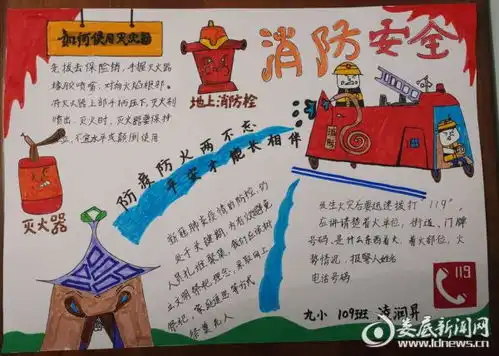 如何使用灭火器
先拔去保险销，手握灭火器
橡胶喷嘴，对向火焰根部。
将灭火器上部手柄压下，灭火剂
喷出，灭火时，灭火器要保持
不宜水平或颠倒使用
地上消防栓
消防安全
灭火器
防疫防火两不忘
平安才能长相伴
新冠肺炎疫情的防控，仍
处于关键期，为有效避免
人员扎堆聚集，我们应该树
立文明祭祀理念，采取网上
祭祀，家庭追思等方式
祭奠先人
发生火灾后要迅速拨打"119"，
在讲清楚着火单位，街道、门牌
号码、是什么东西着火、着火部位，火
势情况，报警人姓名
电话号码
消防
119
九小 109班 凌润昇
娄底新闻网
www.ldnews.cn